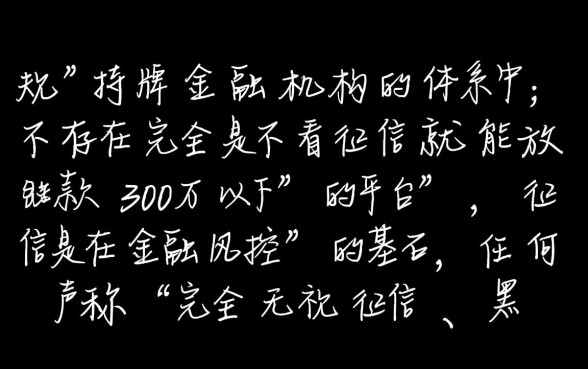 规”持牌金融机构的体系中；
不存在完全是不看征信就能放
贷款 300万以下”的平台”，征
信是在金融风控”的基石，任何
声称“完全无视征信、黑